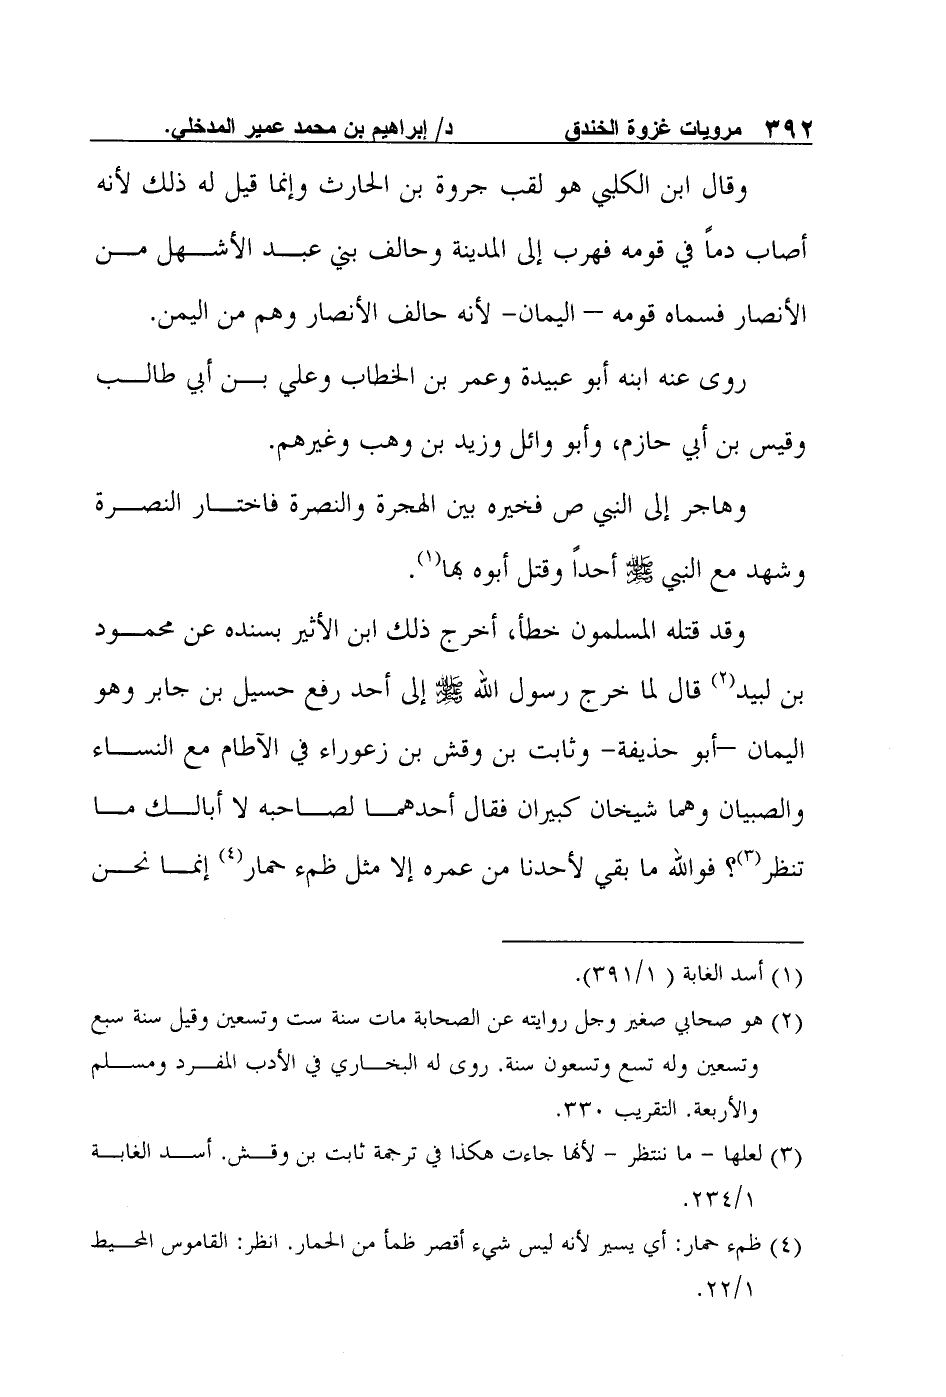 ٣٩٢ مرويات غزوة الخندق د/ إبراهيم بن محمد عمير المدخلي.
وقال ابن الكلبي هو لقب جروة بن الحارث وإنما قيل له ذلك لأنه
أصاب دماً في قومه فهرب إلى المدينة وحالف بني عبد الأشهل من
الأنصار فسماه قومه – اليمان- لأنه حالف الأنصار وهم من اليمن.
روى عنه ابنه أبو عبيدة وعمر بن الخطاب وعلي بن أبي طالب
وقيس بن أبي حازم، وأبو وائل وزيد بن وهب وغيرهم.
وهاجر إلى النبي ص فخيره بين الهجرة والنصرة فاختار النصرة
وشهد مع النبي ﷺ أحداً وقتل أبوه بها(١).
وقد قتله المسلمون خطأ، أخرج ذلك ابن الأثير بسنده عن محمود
بن لبيد(٢) قال لما خرج رسول الله ﷺ إلى أحد رفع حسيل بن جابر وهو
اليمان –أبو حذيفة- وثابت بن وقش بن زعوراء في الآطام مع النساء
والصبيان وهما شيخان كبيران فقال أحدهما لصاحبه لا أبالك ما
تنظر(٣)؟ فوالله ما بقي لأحدنا من عمره إلا مثل ظمء حمار(٤) إنما نحن
(١) أسد الغابة ( ٣٩١/١).
(٢) هو صحابي صغير وجل روايته عن الصحابة مات سنة ست وتسعين وقيل سنة سبع
وتسعين وله تسع وتسعون سنة. روى له البخاري في الأدب المفرد ومسلم
والأربعة. التقريب ٣٣٠.
(٣) لعلها - ما ننتظر - لأنها جاءت هكذا في ترجمة ثابت بن وقش. أسد الغابة
٢٣٤/١.
(٤) ظمء حمار: أي يسير لأنه ليس شيء أقصر ظمأ من الحمار. انظر: القاموس المحيط
٢٢/١.